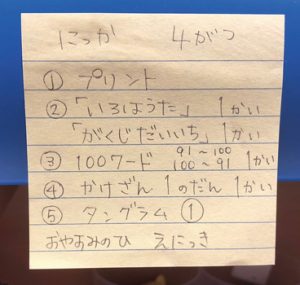 にっか 4がつ
① プリント
② 「いろはうた」 1かい
「がくじだいいち」 1かい
③ 100ワード 91~100 100~91 1かい
④ かけざん 1のだん 1かい
⑤ タングラム ①
おやすみのひ えにっき